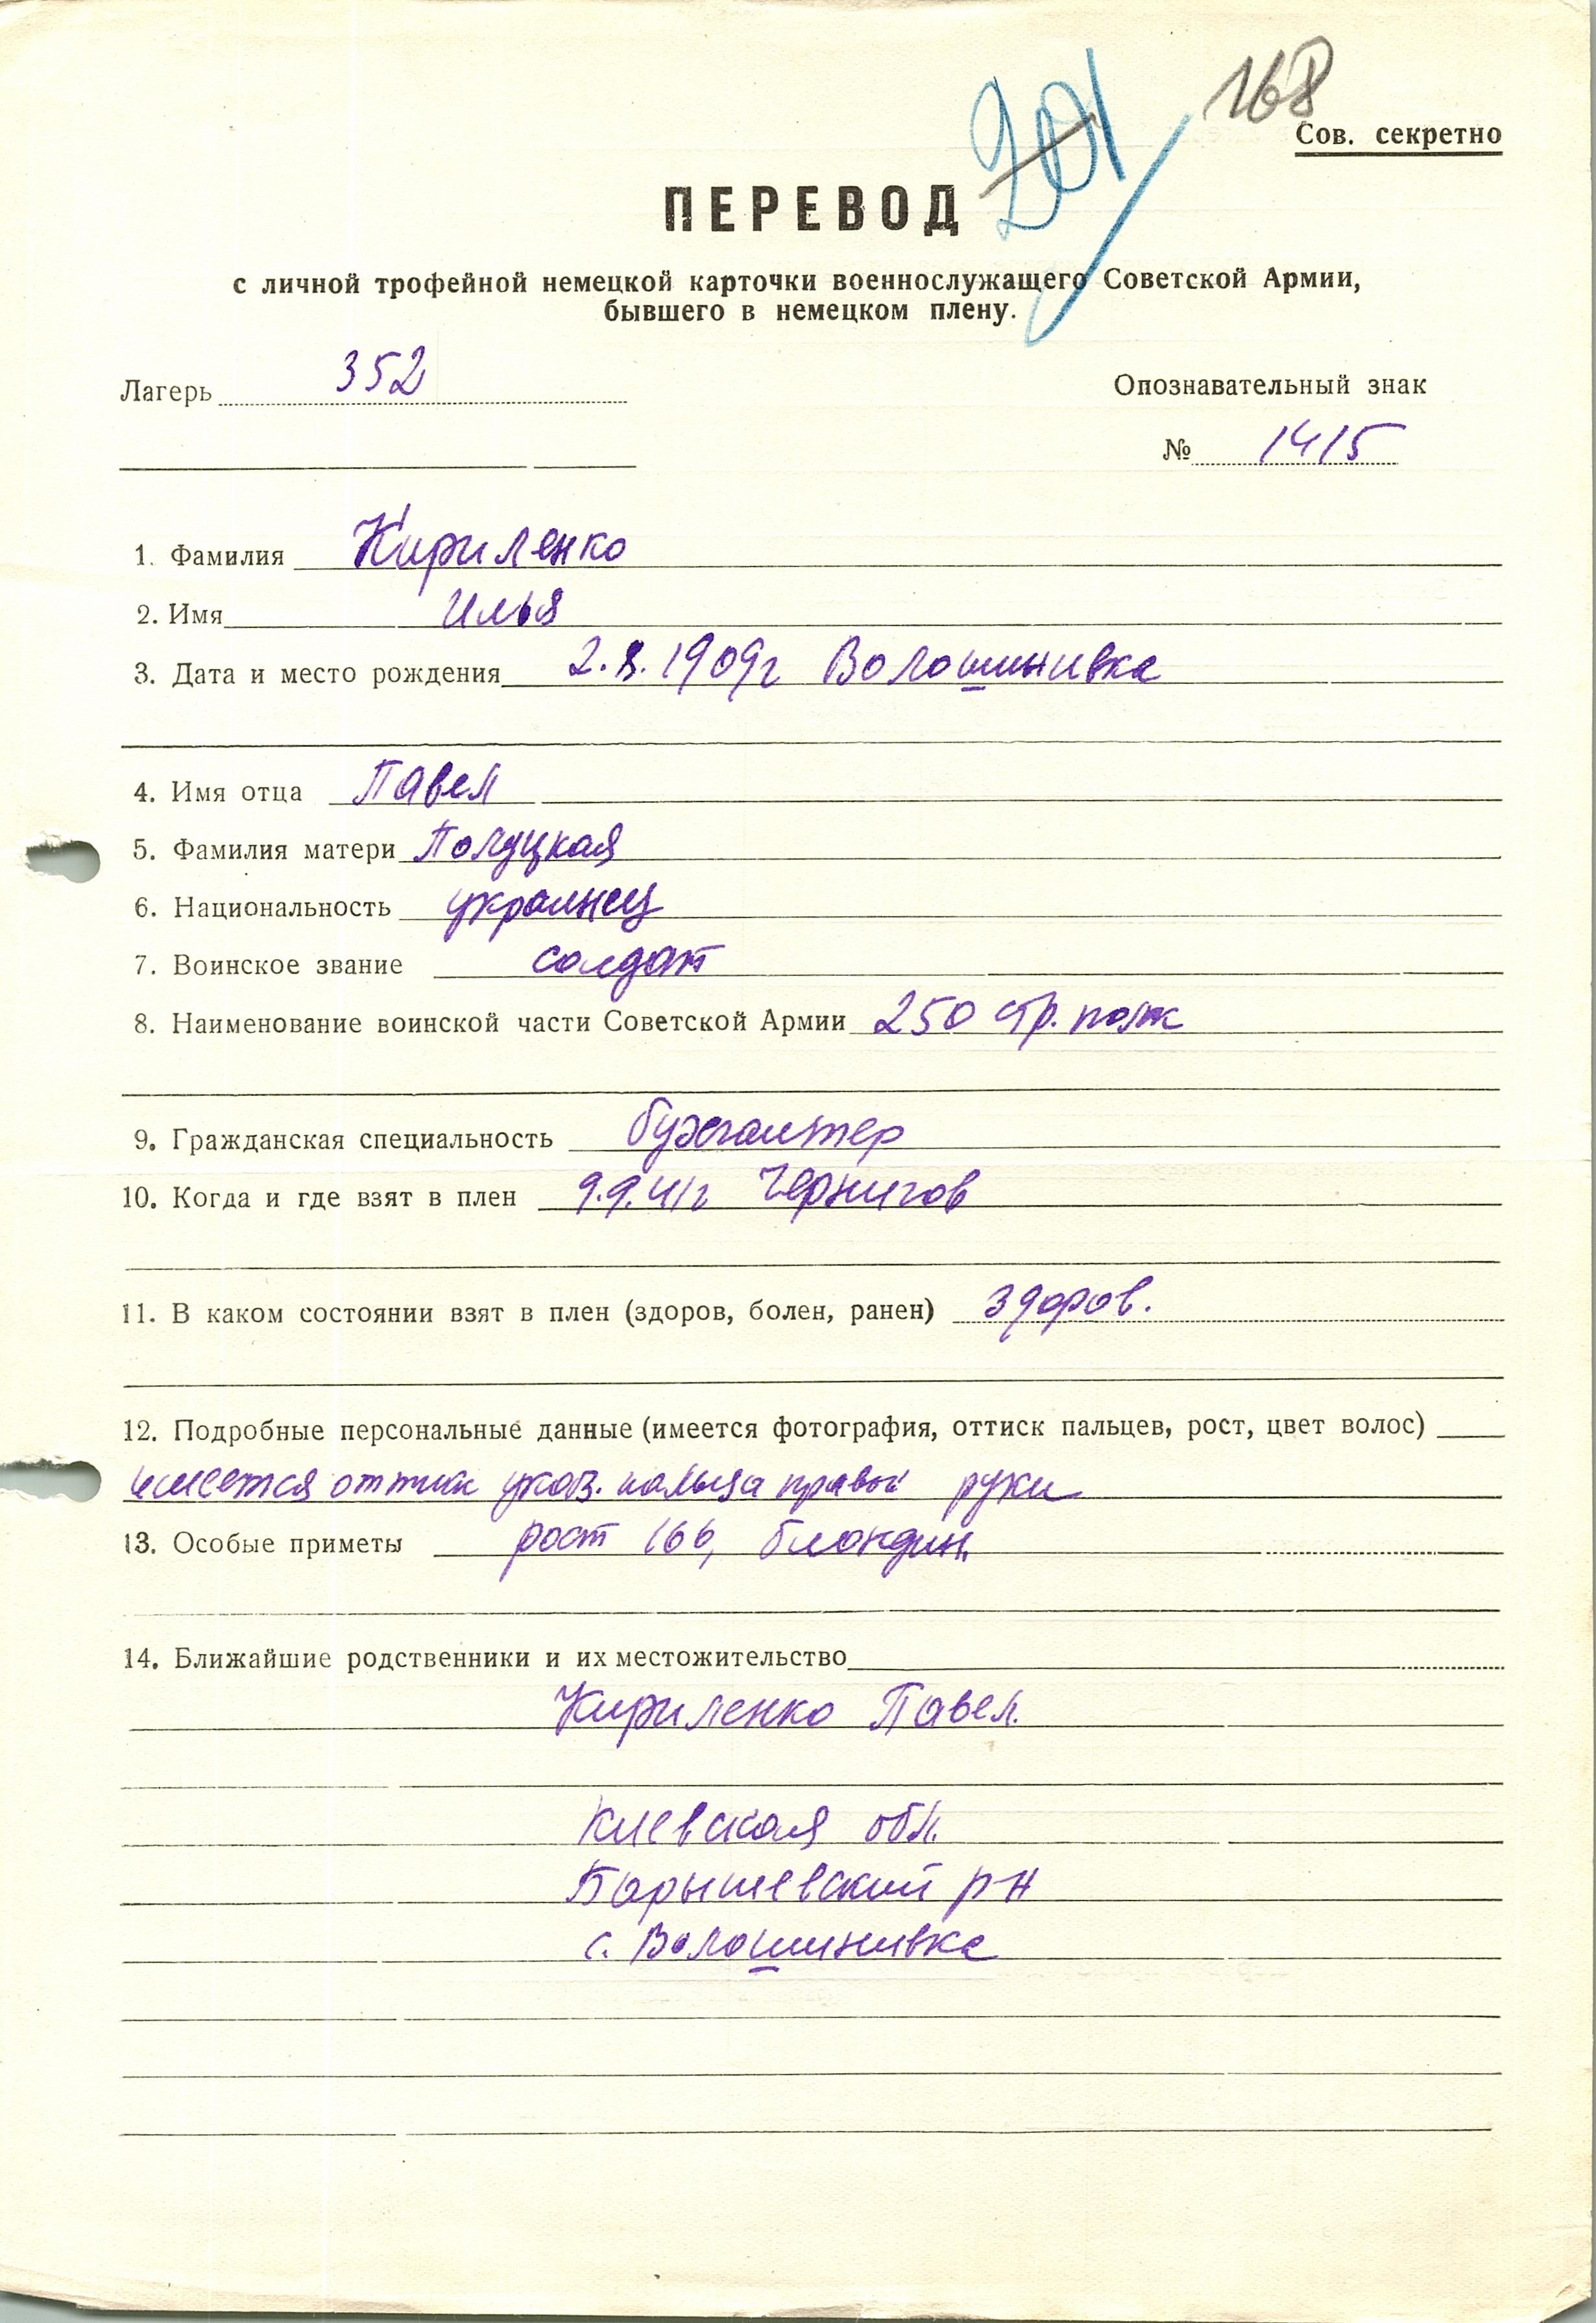 201
168
Сов. секретно
ПЕРЕВОД
с личной трофейной немецкой карточки военнослужащего Советской Армии,
бывшего в немецком плену.
Лагерь 352
Опознавательный знак
№ 1415
1. Фамилия Кириленко
2. Имя Илья
3. Дата и место рождения 2.8.1909г Волошинивка
4. Имя отца Павел
5. Фамилия матери Полуцкая
6. Национальность украинец
7. Воинское звание солдат
8. Наименование воинской части Советской Армии 250 стр. полк
9. Гражданская специальность бухгалтер
10. Когда и где взят в плен 9.9.41г Чернигов
11. В каком состоянии взят в плен (здоров, болен, ранен) здоров.
12. Подробные персональные данные (имеется фотография, оттиск пальцев, рост, цвет волос)
имеется оттиск указ. пальца правой руки
13. Особые приметы рост 166, блондин.
14. Ближайшие родственники и их местожительство
Кириленко Павел.
Киевская обл.
Барышевский р-н
с. Волошинивка